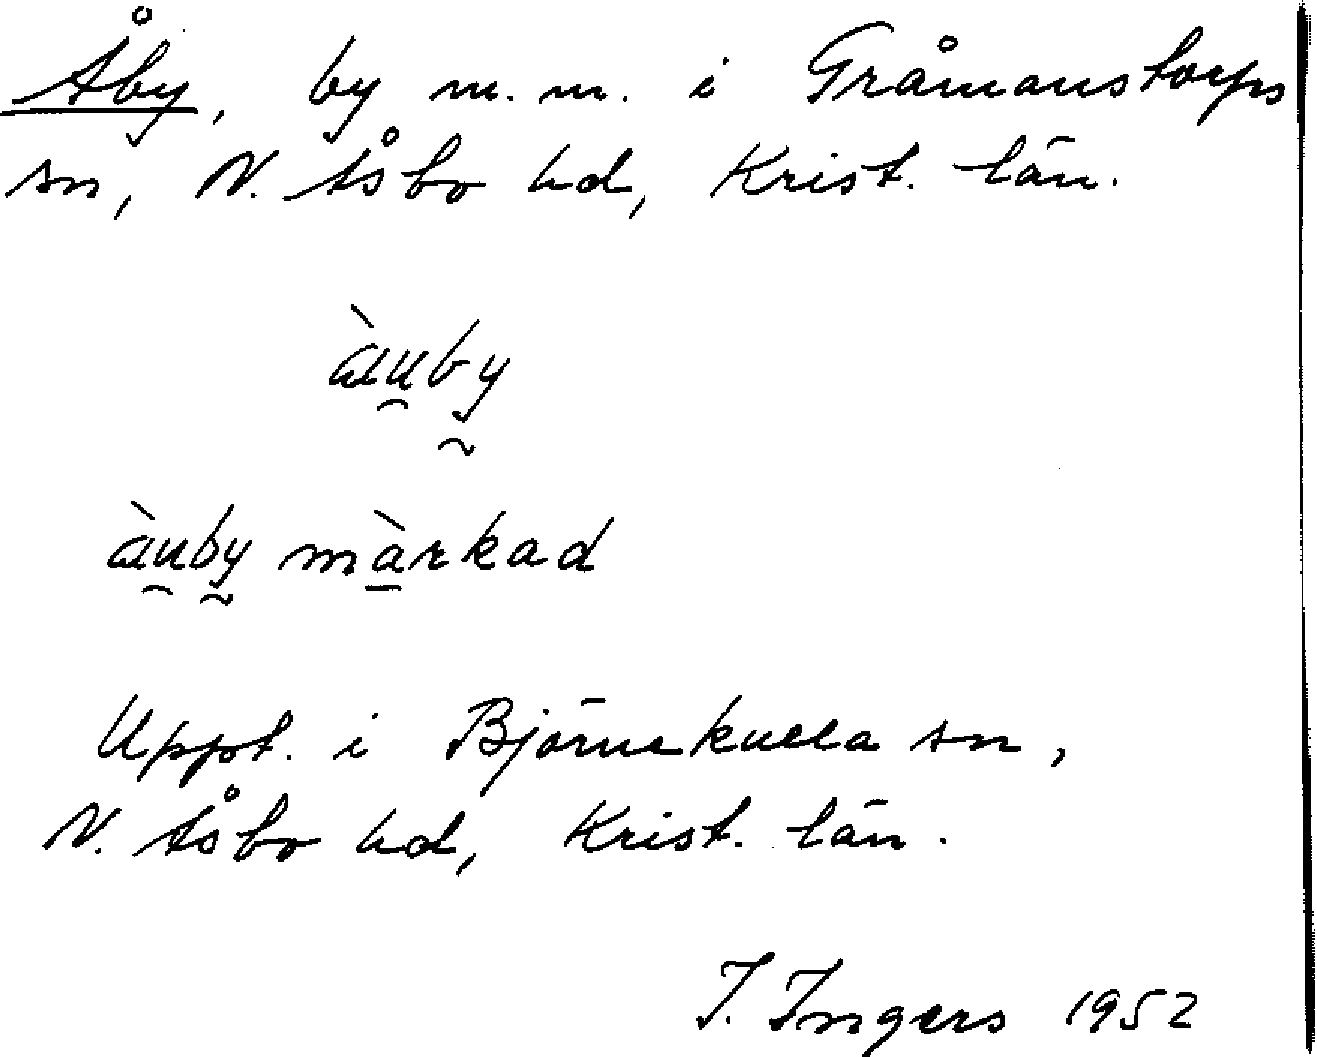 Åby, by m.m. i Gråmanstorps
sn, N. Åsbo hd, Krist. län.
àu̯by̰
àu̯by̰ mà̱rkad
Uppt. i Björnekulla sn,
N. Åsbo hd, Krist. län.
I. Ingers 1952